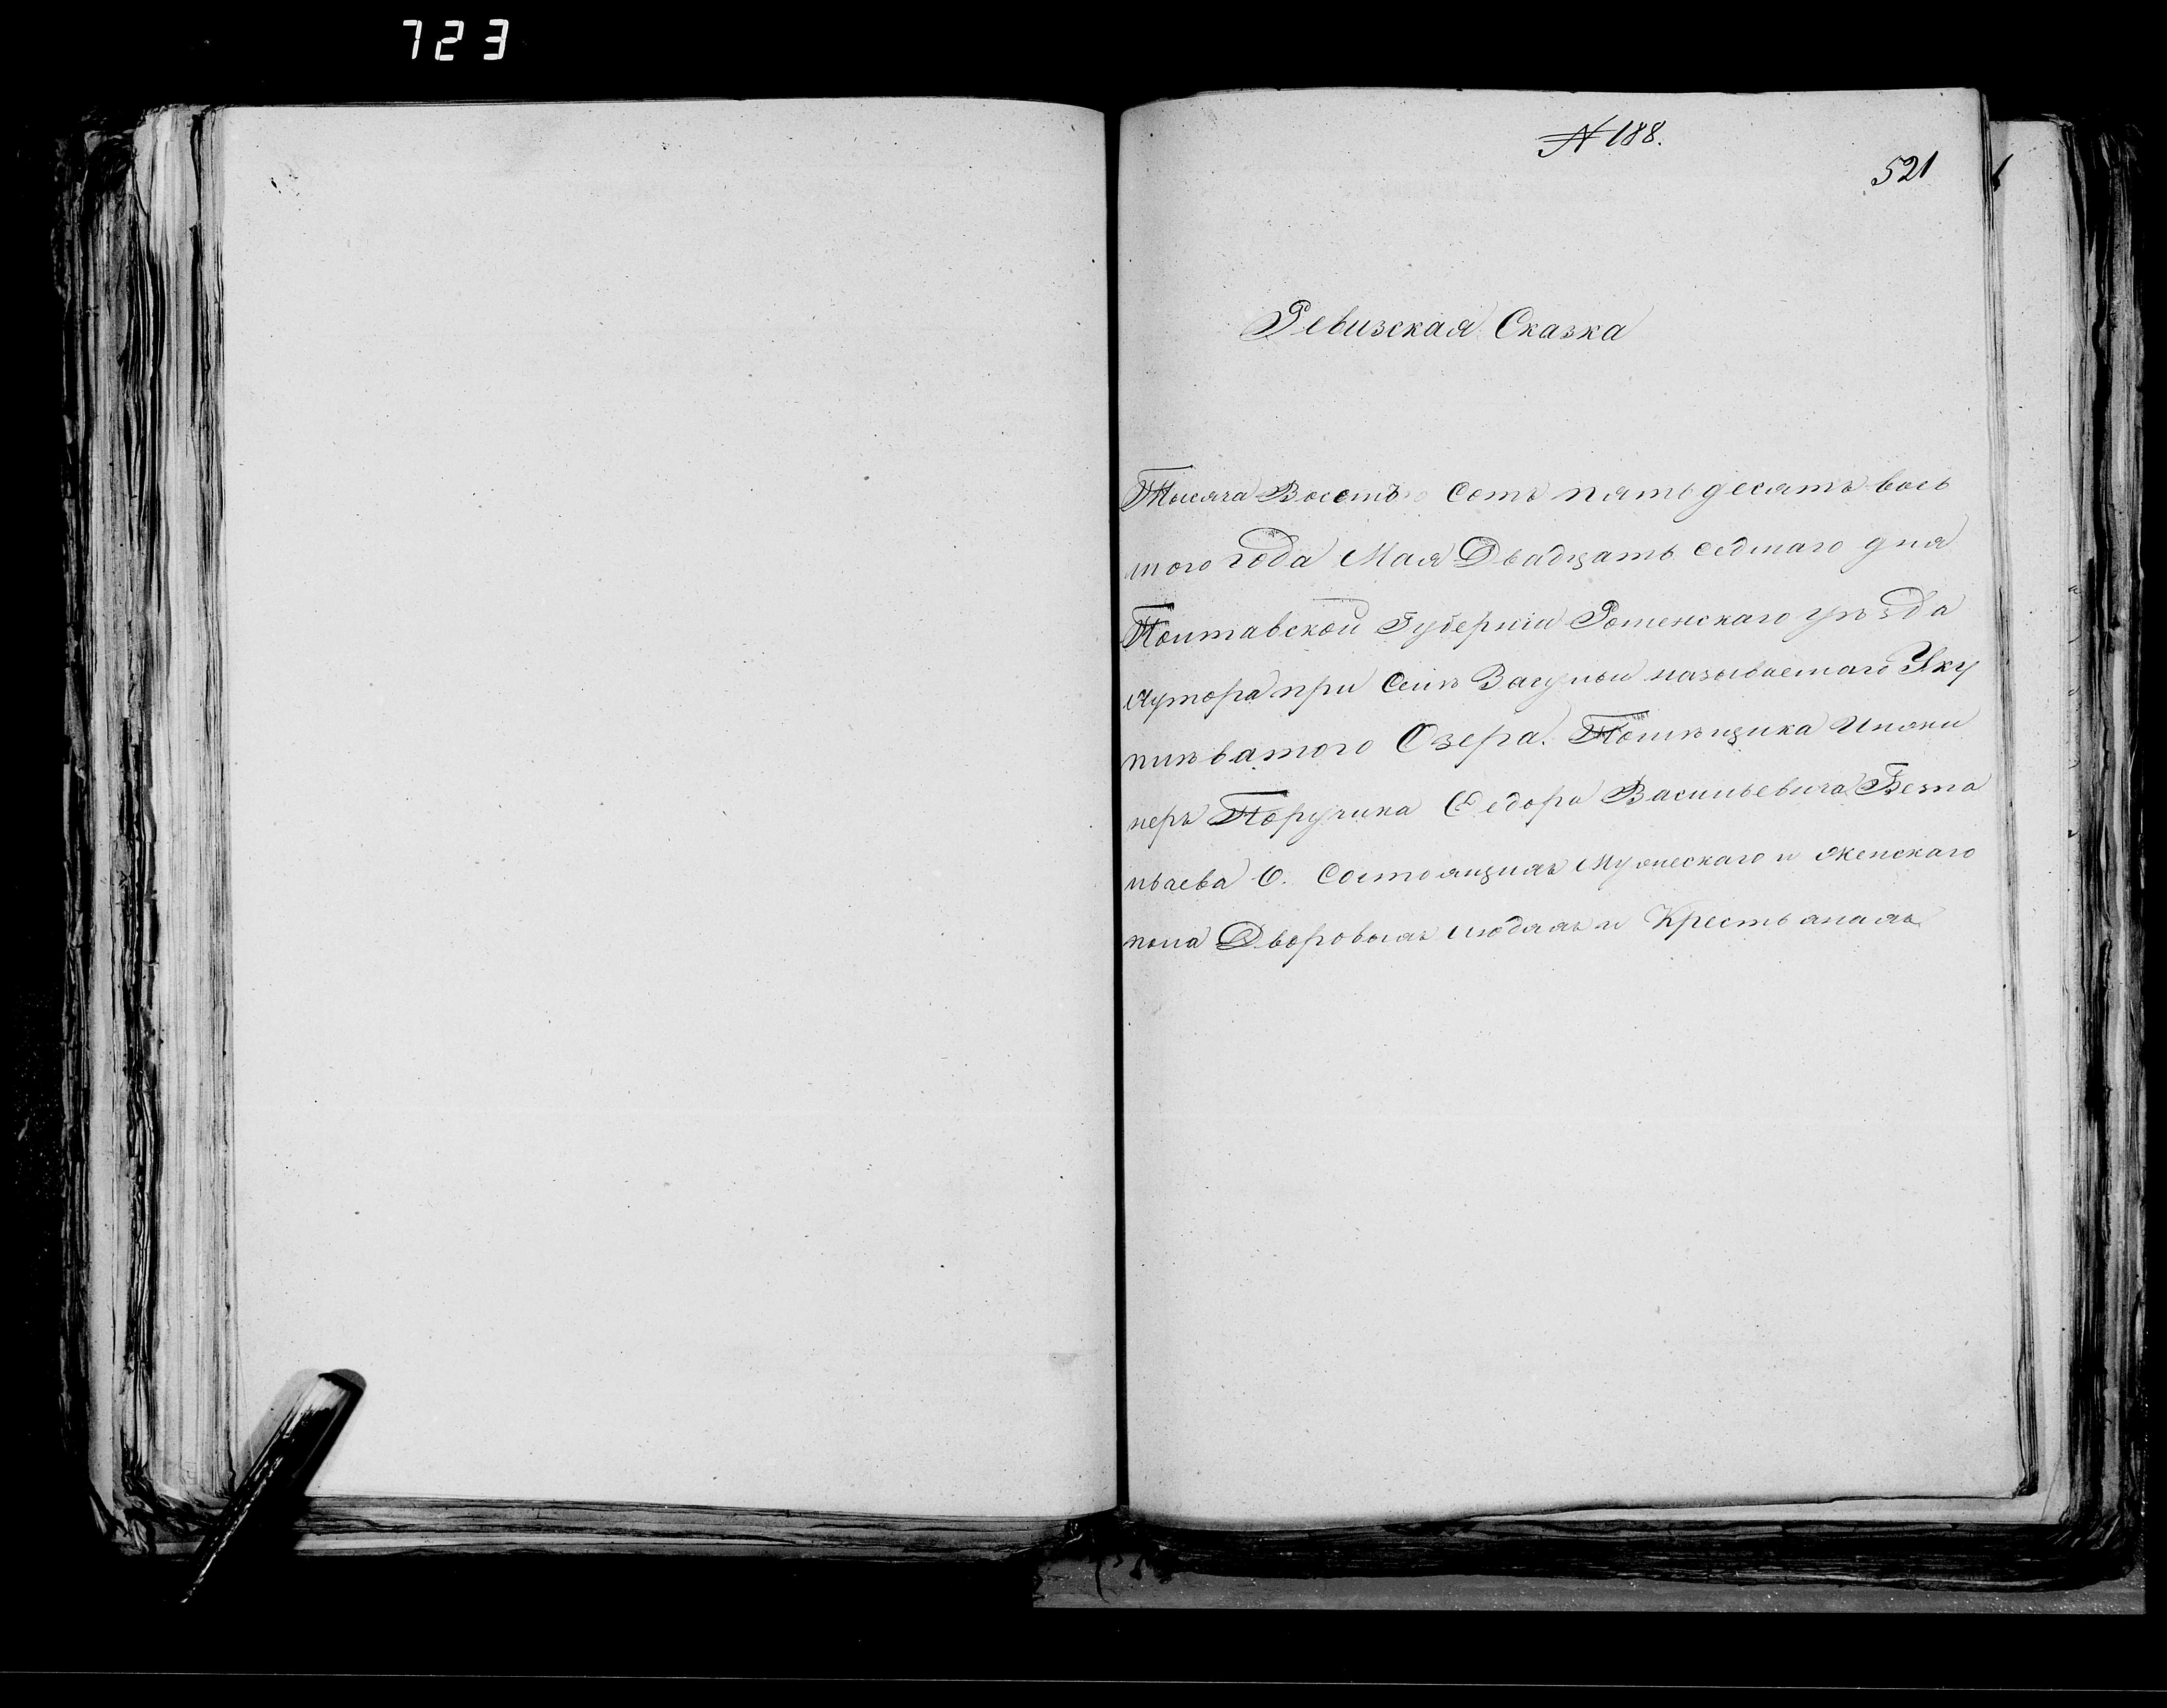 723
№ 188.
521
Ревизская Сказка
Тысяча Восемь Сотъ пятьдесятъ вось
мого года Мая Двадцать седмаго дня
Полтавской Губерніи Роменскаго уѣзда
хутора при Селѣ называемаго
Озера. Помѣщика Инжи
неръ Поручика Федора Васильевича Безпа
льчева О. Состоящихъ Мужескаго и Женскаго
пола Дворовыхъ людяхъ и Крестьянахъ